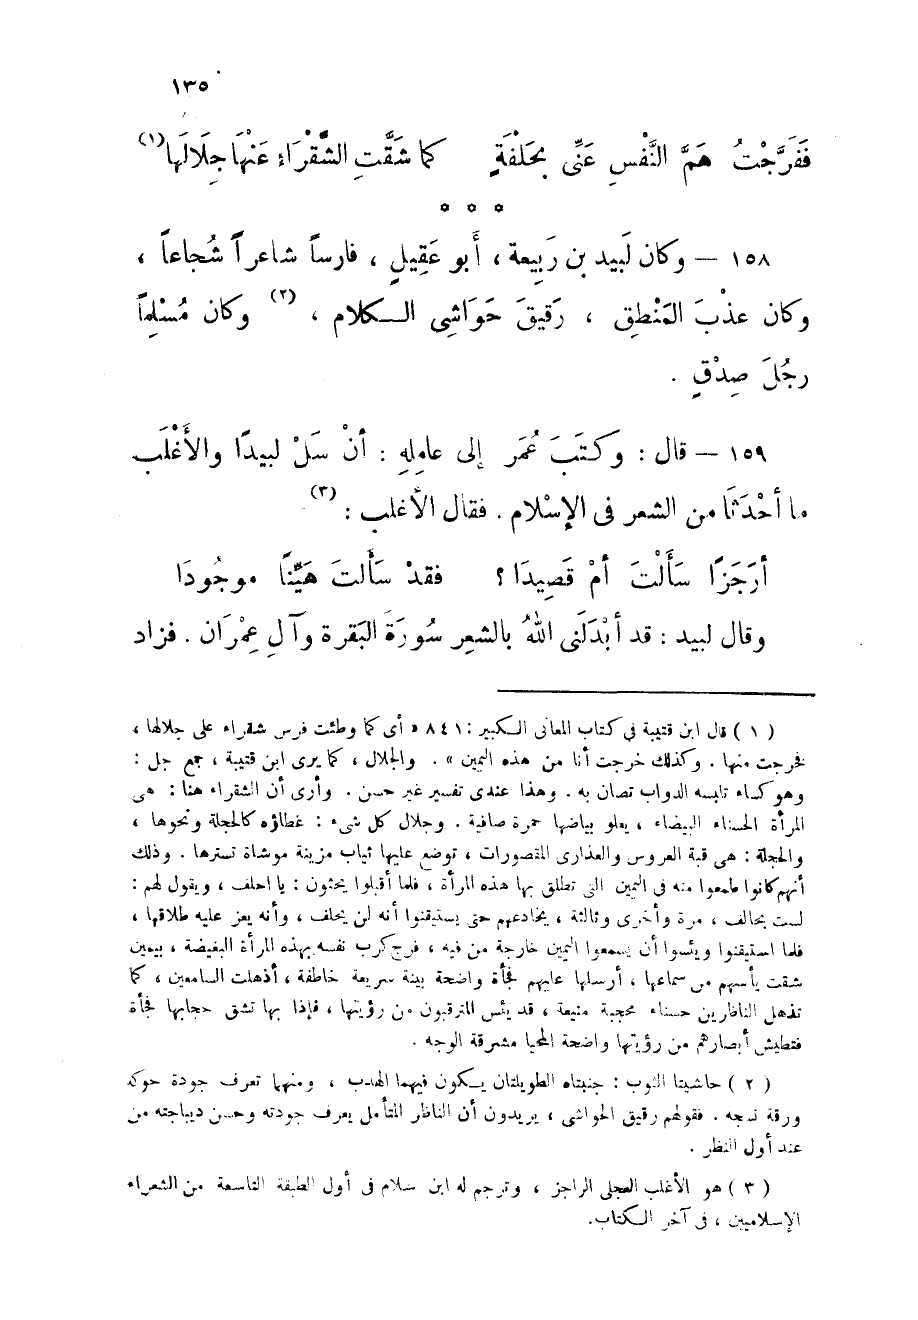 ١٣٥
فَفَرَّجْتُ هَمَّ النَّفْسِ عَنِّى بحَلْفَةٍ كما شَقَّتِ الشَّقْرَاءُ عَنْهَا جِلَالَهَا (١)
* * *
١٥٨ — وكان لَبيد بن رَبِيعة ، أَبو عَقِيلٍ ، فارساً شاعراً شُجاعاً ،
وكان عذْبَ المَنْطِق ، رَقِيقَ حَوَاشِى الـكلام ، (٢) وكان مُسْلِماً
رجُلَ صِدْقٍ .
١٥٩ — قال : وكَتَبَ عُمَر إلى عامِلِهِ : أنْ سَلْ لبيدًا والأَغْلَب
ما أحْدَثَا من الشعر فى الإسْلام . فقال الأغلب : (٣)
أرَجَزًا سَأَلْتَ أمْ قَصِيدَا ؟ فقدْ سَأَلتَ هَيِّنًا موجُودَا
وقال لبيد : قد أبْدَلَنى اللهُ بالشعِر سُورَة البَقرة وآلِ عِمْرَان . فزاد
( ١ ) قال ابن قتيبة في كتاب المعانى الـكبير : ٨٤١ « أى كما وطئت فرس شقراء على جلالها ،
فخرجت منها . وكذلك خرجت أنا من هذه اليمين » . والجلال ، كما يرى ابن قتيبة ، جمع جل :
وهو كساء تلبسه الدواب تصان به . وهذا عندى تفسير غير حسن . وأرى أن الشقراء هنا : هى
المرأة الحسناء البيضاء ، يعلو بياضها حمرة صافية . وجلال كل شىء : غطاؤه كالحجلة ونحوها ،
والحجلة : هى قبة العروس والعذارى المقصورات ، توضع عليها ثياب مزينة موشاة تسترها . وذلك
أنهم كانوا طمعوا منه فى اليمين التى تطلق بها هذه المرأة ، فلما أقبلوا يحثون : يا احلف ، ويقول لهم :
لست بحالف ، مرة وأخرى وثالثة ، يخادعهم حتى يستيقنوا أنه لن يحلف ، وأنه يعز عليه طلاقها ،
فلما استيقنوا ويئسوا أن يسمعوا اليمين خارجة من فيه ، فرج كرب نفسه بهذه المرأة البغيضة ، بيمين
شقت يأسهم من سماعها ، أرسلها عليهم فجأة واضحة بينة سريعة خاطفة ، أذهلت السامعين ، كما
تذهل الناظرين حسناء محجبة منيعة ، قد يئس المترقبون من رؤيتها ، فإذا بها تشق حجابها فجأة
فتطيش أبصارهم من رؤيتها واضحة المحيا مشرقة الوجه .
( ٢ ) حاشيتا الثوب : جنبتاه الطويلتان يـكون فيهما الهدب ، ومنهما تعرف جودة حوكه
ورقة نسجه . فقولهم رقيق الحواشى ، يريدون أن الناظر المتأمل يعرف جودته وحسن ديباجته من
عند أول النظر .
( ٣ ) هو الأغلب العجلى الراجز ، وترجم له ابن سلام فى أول الطبقة التاسعة من الشعراء
الإسلاميين ، فى آخر الـكتاب.